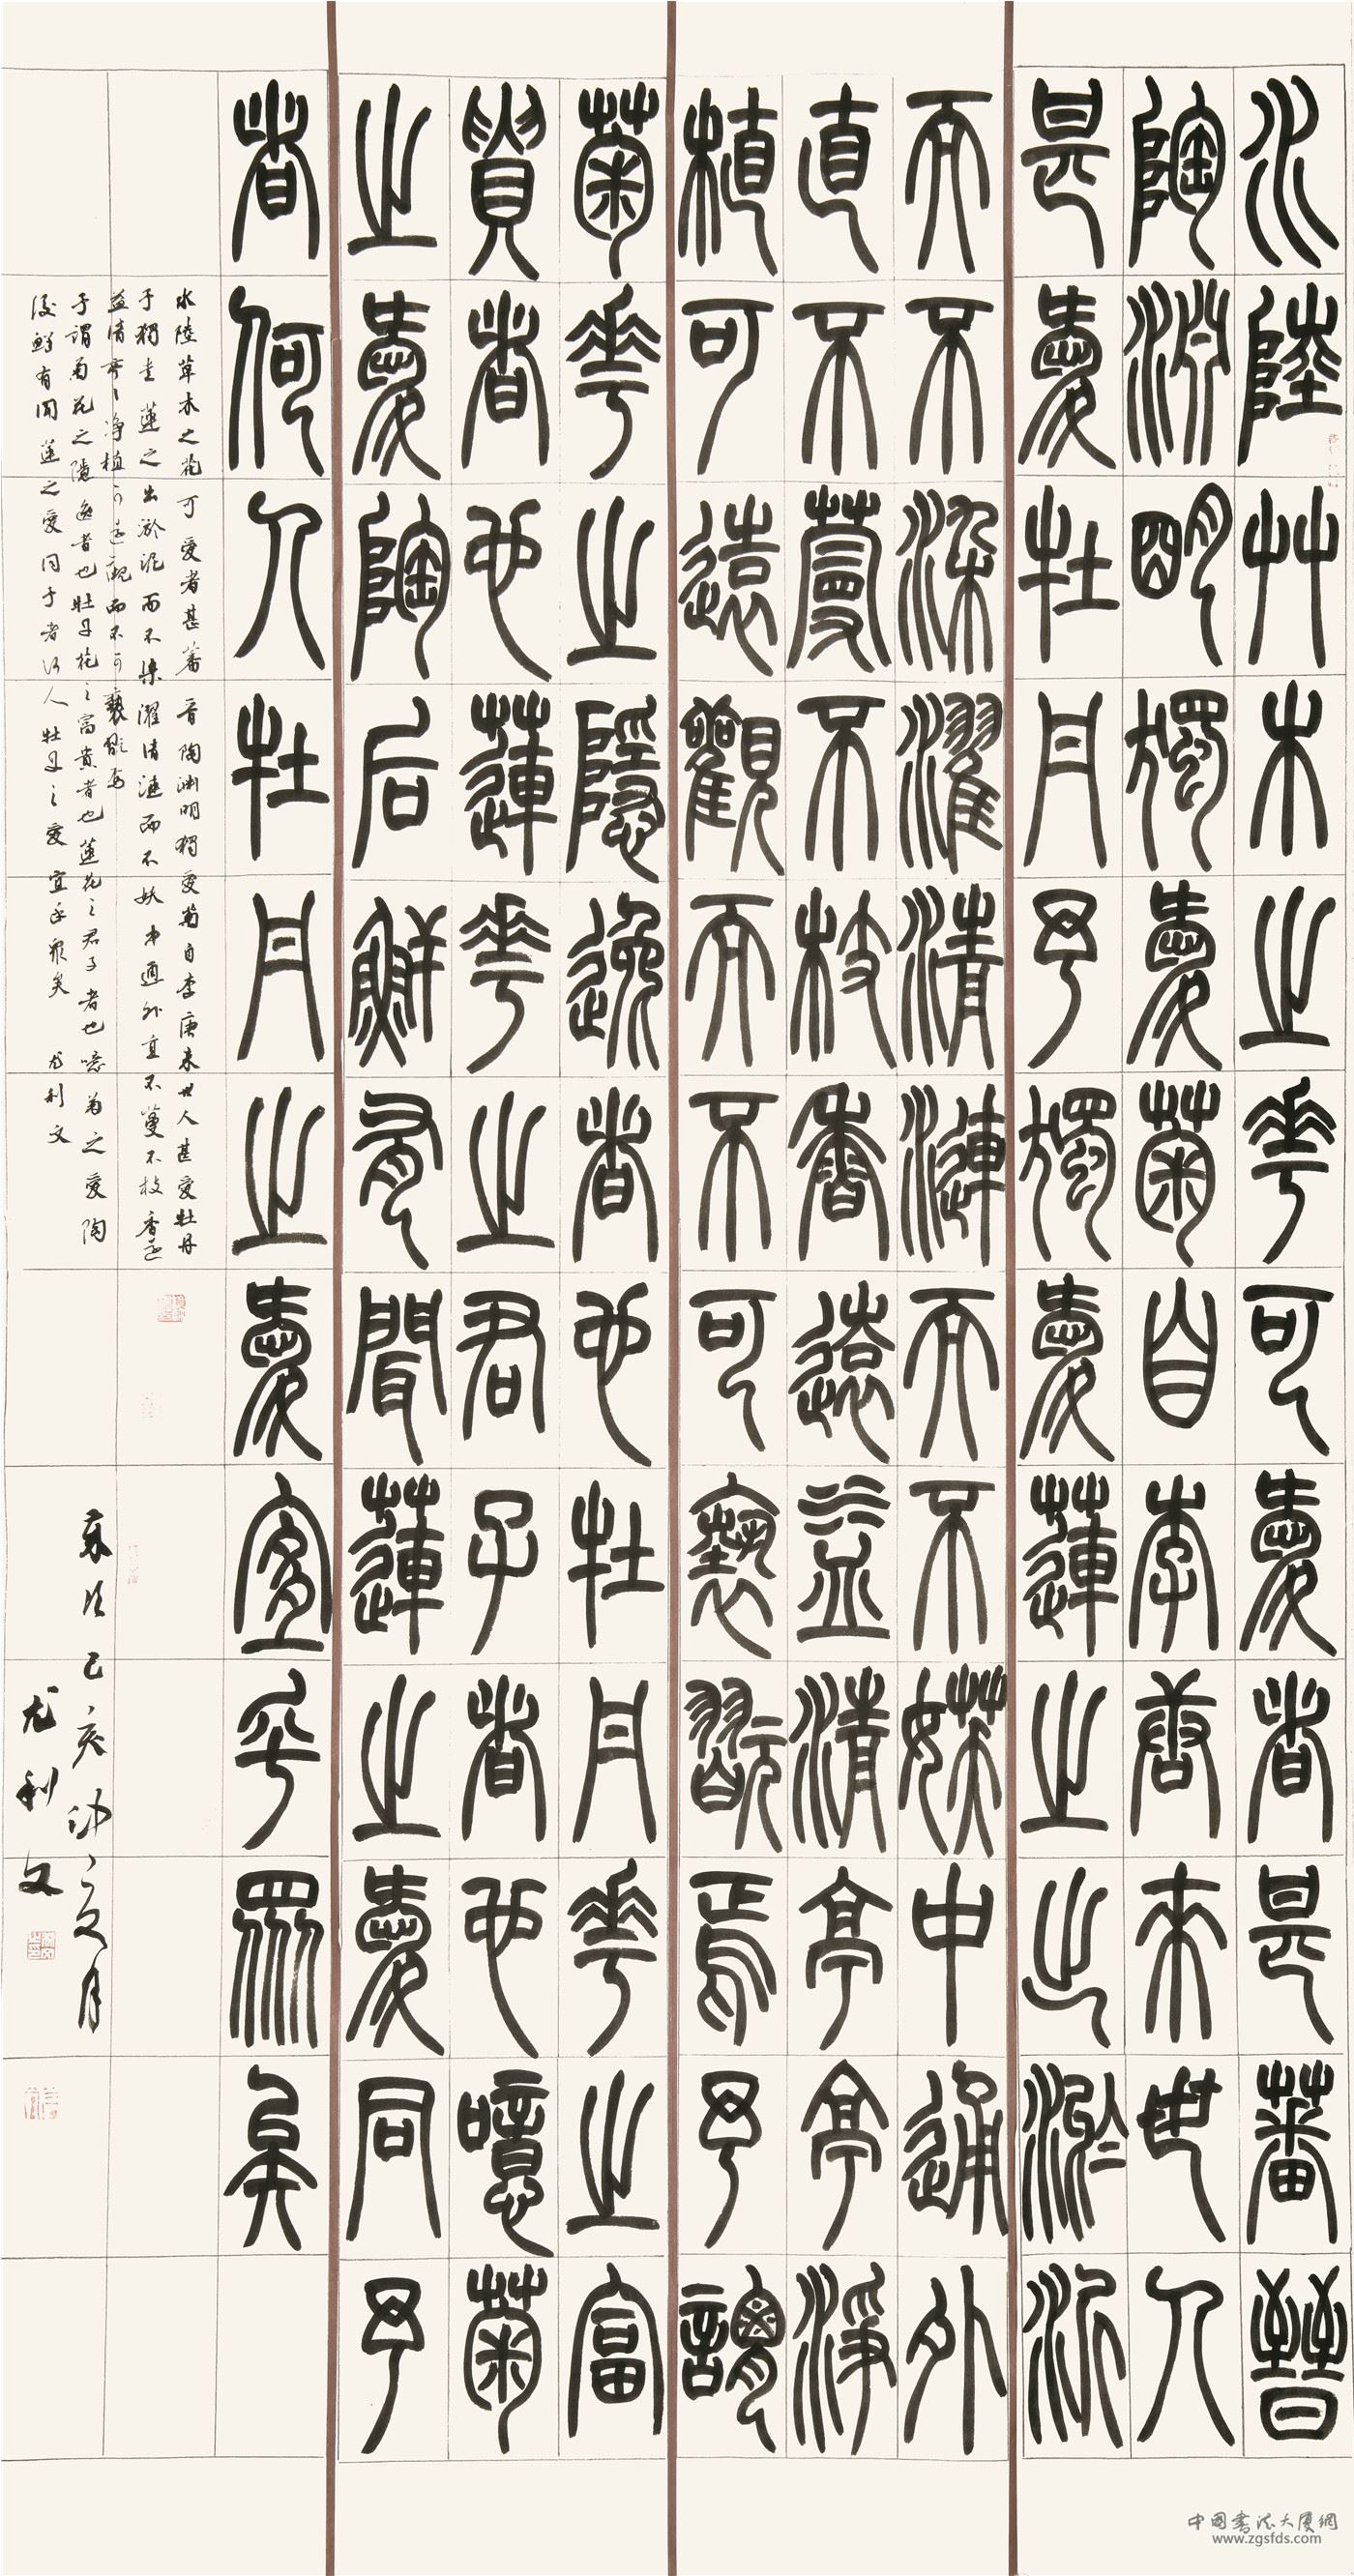 水陸艸木之華可愛者甚蕃晉
陶淵明獨愛菊自李唐來世人
甚愛牡丹予獨愛蓮之出淤泥
而不染濯清漣而不媄中通外
直不蔓不枝香遠益清亭亭淨
植可遠觀而不可褻翫焉予謂
菊華之隱逸者也牡丹華之富
貴者也蓮華之君子者也噫菊
之愛陶后鮮有聞蓮之愛同予
者何人牡丹之愛宜乎眾矣
水陸草木之花可愛者甚蕃晉陶淵明獨愛菊自李唐来世人甚愛牡丹
予獨愛蓮之出淤泥而不染濯清漣而不妖中通外直不蔓不枝香遠
益清亭亭净植可遠觀而不可褻翫焉
予謂菊花之隱逸者也牡丹花之富貴者也蓮花之君子者也噫菊之愛陶
後鮮有聞蓮之愛同予者何人牡丹之愛宜乎眾矣 尤利文
己亥仲夏月
尤利文
中国书法大厦網
www.zgsfds.com